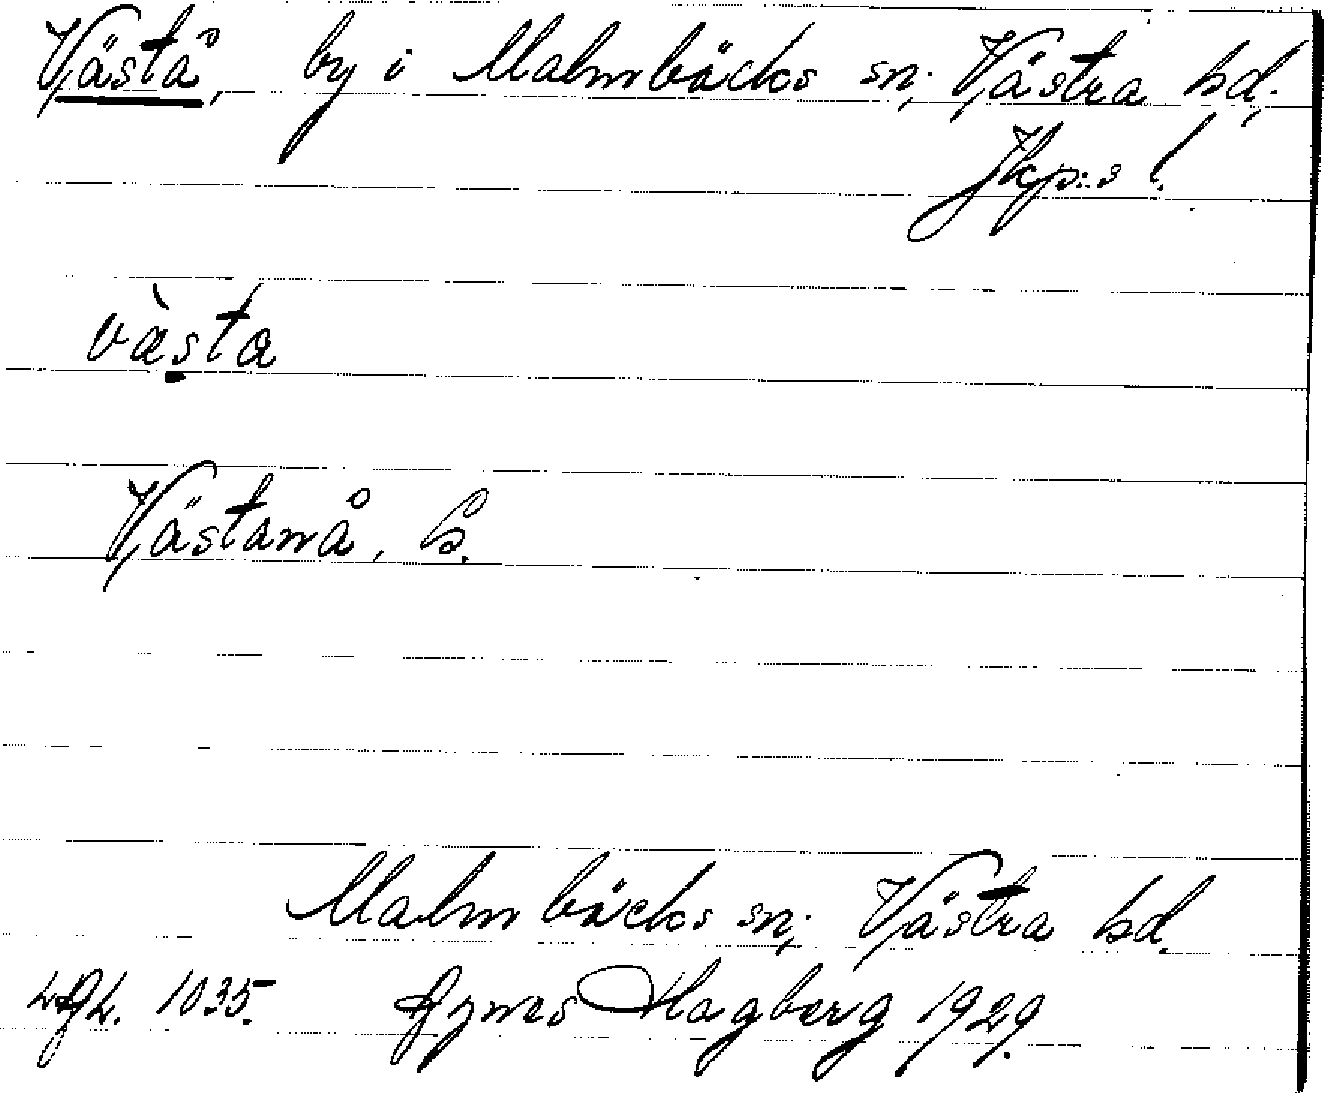 Västå, by i Malmbäcks sn; Västra hd.
Jkp:s l.
västa
Västanå, G.
Malmbäcks sn; Västra hd.
1035. Agnes Hagberg 1929.